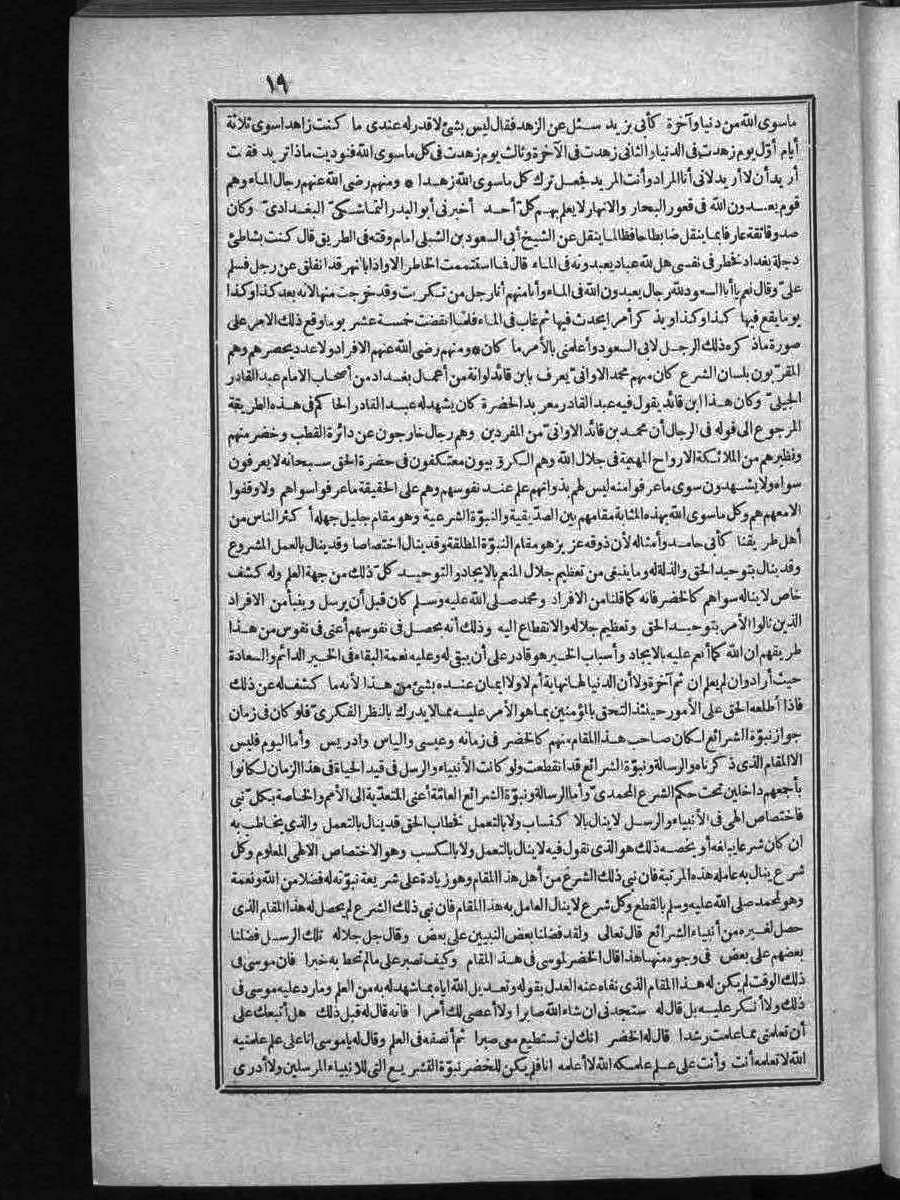 ١٩
ماسوى الله من دنيا وآخرة كأبى يزيد سئل عن الزهد فقال ليس بشئ لا قدر له عندى ما كنت زاهدا سوى ثلاثة
أيام أوّل يوم زهدت فى الدنيا والثانى زهدت فى الآخرة وثالث يوم زهدت فى كل ماسوى الله فنوديت ماذا تريد فقلت
أريد أن لا أريد لانى أنا المراد وأنت المريد فجعل ترك كل ماسوى الله زهدا * ومنهم رضى الله عنهم رجال الماء وهم
قوم يعبدون الله فى قعور البحار والانهار لا يعلم بهم كل أحد أخبرنى أبو البدر التماشكىّ البغدادىّ وكان
صدوقا ثقة عارفا بما ينقل ضابطا حافظا لما ينقل عن الشيخ أبى السعود بن الشبلى امام وقته فى الطريق قال كنت بشاطئ
دجلة بغداد فخطر فى نفسى هل لله عباد يعبدونه فى الماء قال فما استتممت الخاطر الا واذا بالنهر قد انفلق عن رجل فسلم
علىّ وقال نعم يا أبا السعود لله رجال يعبدون الله فى الماء وأنا منهم أنا رجل من تكريت وقد خرجت منها لانه بعد كذا وكذا
يوما يقع فيها كذا وكذا ويذكر أمرا يحدث فيها ثم غاب فى الماء فلما انقضت خمسة عشر يوما وقع ذلك الامر على
صورة ماذكره ذلك الرجل لابى السعود وأعلمنى بالأمر ما كان * ومنهم رضى الله عنهم الافراد ولا عدد يحصرهم وهم
المقرّبون بلسان الشرع كان منهم محمد الاوانىّ يعرف بابن قائد لوانة من أعمال بغداد من أصحاب الامام عبد القادر
الجيلىّ وكان هذا ابن قائد يقول فيه عبد القادر معربد الحضرة كان يشهد له عبد القادر الحاكم فى هذه الطريقة
المرجوع الى قوله فى الرجال أن محمد بن قائد الاوانىّ من المفردين وهم رجال خارجون عن دائرة القطب وخضر منهم
ونظيرهم من الملائكة الارواح المهيمة فى جلال الله وهم الكروبيون معتكفون فى حضرة الحق سبحانه لا يعرفون
سواه ولا يشهدون سوى ما عرفوا منه ليس لهم بذواتهم علم عند نفوسهم وهم على الحقيقة ما عرفوا سواهم ولا وقفوا
الا معهم هم وكل ماسوى الله بهذه المثابة مقامهم بين الصدّيقية والنبوّة الشرعية وهو مقام جليل جهله أكثر الناس من
أهل طريقنا كأبى حامد وأمثاله لأن ذوقه عزيز هو مقام النبوّة المطلقة وقد ينال اختصاصا وقد ينال بالعمل المشروع
وقد ينال بتوحيد الحق والذلة له وما ينبغى من تعظيم جلال المنعم بالايجاد والتوحيد كلّ ذلك من جهة العلم وله كشف
خاص لا يناله سواهم كالخضر فانه كما قلنا من الافراد ومحمد صلى الله عليه وسلم كان قبل أن يرسل وينبأ من الافراد
الذين نالوا الأمر بتوحيد الحق وتعظيم جلاله والانقطاع اليه وذلك أنه يحصل فى نفوسهم أعنى فى نفوس من هذا
طريقهم ان الله كما أنعم عليه بالايجاد وأسباب الخير هو قادر على أن يبقى له وعليه نعمة البقاء فى الخير الدائم والسعادة
حيث أراد وان لم يعلم ان ثم آخرة ولا أن الدنيا لها نهاية أم لا ولا ايمان عنده بشئ من هذا لأنه ما كشف له عن ذلك
فاذا أطلعه الحق على الأمور حينئذ التحق بالمؤمنين بما هو الأمر عليه مما لا يدرك بالنظر الفكرىّ فلو كان فى زمان
جواز نبوّة الشرائع لكان صاحب هذا المقام منهم كالخضر فى زمانه وعيسى والياس وادريس وأما اليوم فليس
الا المقام الذى ذكرناه والرسالة ونبوّة الشرائع قد انقطعت ولو كانت الأنبياء والرسل فى قيد الحياة فى هذا الزمان لكانوا
بأجمعهم داخلين تحت حكم الشرع المحمدىّ وأما الرسالة ونبوّة الشرائع العامّة أعنى المتعدّية الى الأمم والخاصة بكل نبى
فاختصاص الهى فى الأنبياء والرسل لا ينال بالاكتساب ولا بالتعمل فخطاب الحق قد ينال بالتعمل والذى يخاطب به
ان كان شرعا يبلغه أو يخصه ذلك هو الذى نقول فيه لا ينال بالتعمل ولا بالكسب وهو الاختصاص الالهى المعلوم وكلّ
شرع ينال به عامله هذه المرتبة فان نبى ذلك الشرع من أهل هذا المقام وهو زيادة على شريعة نبوّته له فضلا من الله ونعمة
وهو لمحمد صلى الله عليه وسلم بالقطع وكل شرع لا ينال العامل به هذا المقام فان نبى ذلك الشرع لم يحصل له هذا المقام الذى
حصل لغيره من أنبياء الشرائع قال تعالى ولقد فضلنا بعض النبيين على بعض وقال جل جلاله تلك الرسل فضلنا
بعضهم على بعض فى وجوه منها هذا قال الخضر لموسى فى هذا المقام وكيف تصبر على مالم تحط به خبرا فان موسى فى
ذلك الوقت لم يكن له هذا المقام الذى نفاه عنه العدل بقوله وتعديل الله اياه بما شهد له به من العلم وما رد عليه موسى فى
ذلك ولا أنكر عليه بل قال له ستجدنى ان شاء الله صابرا ولا أعصى لك أمرا فانه قال له قبل ذلك هل أتبعك على
أن تعلمنى مما علمت رشدا قال له الخضر انك لن تستطيع معى صبرا ثم أنصفه فى العلم وقال له يا موسى انا على علم علمنيه
الله لا تعلمه أنت وأنت على علم علمكه الله لا أعلمه انا فلم يكن للخضر نبوّة التشريع التى للانبياء المرسلين ولا أدرى